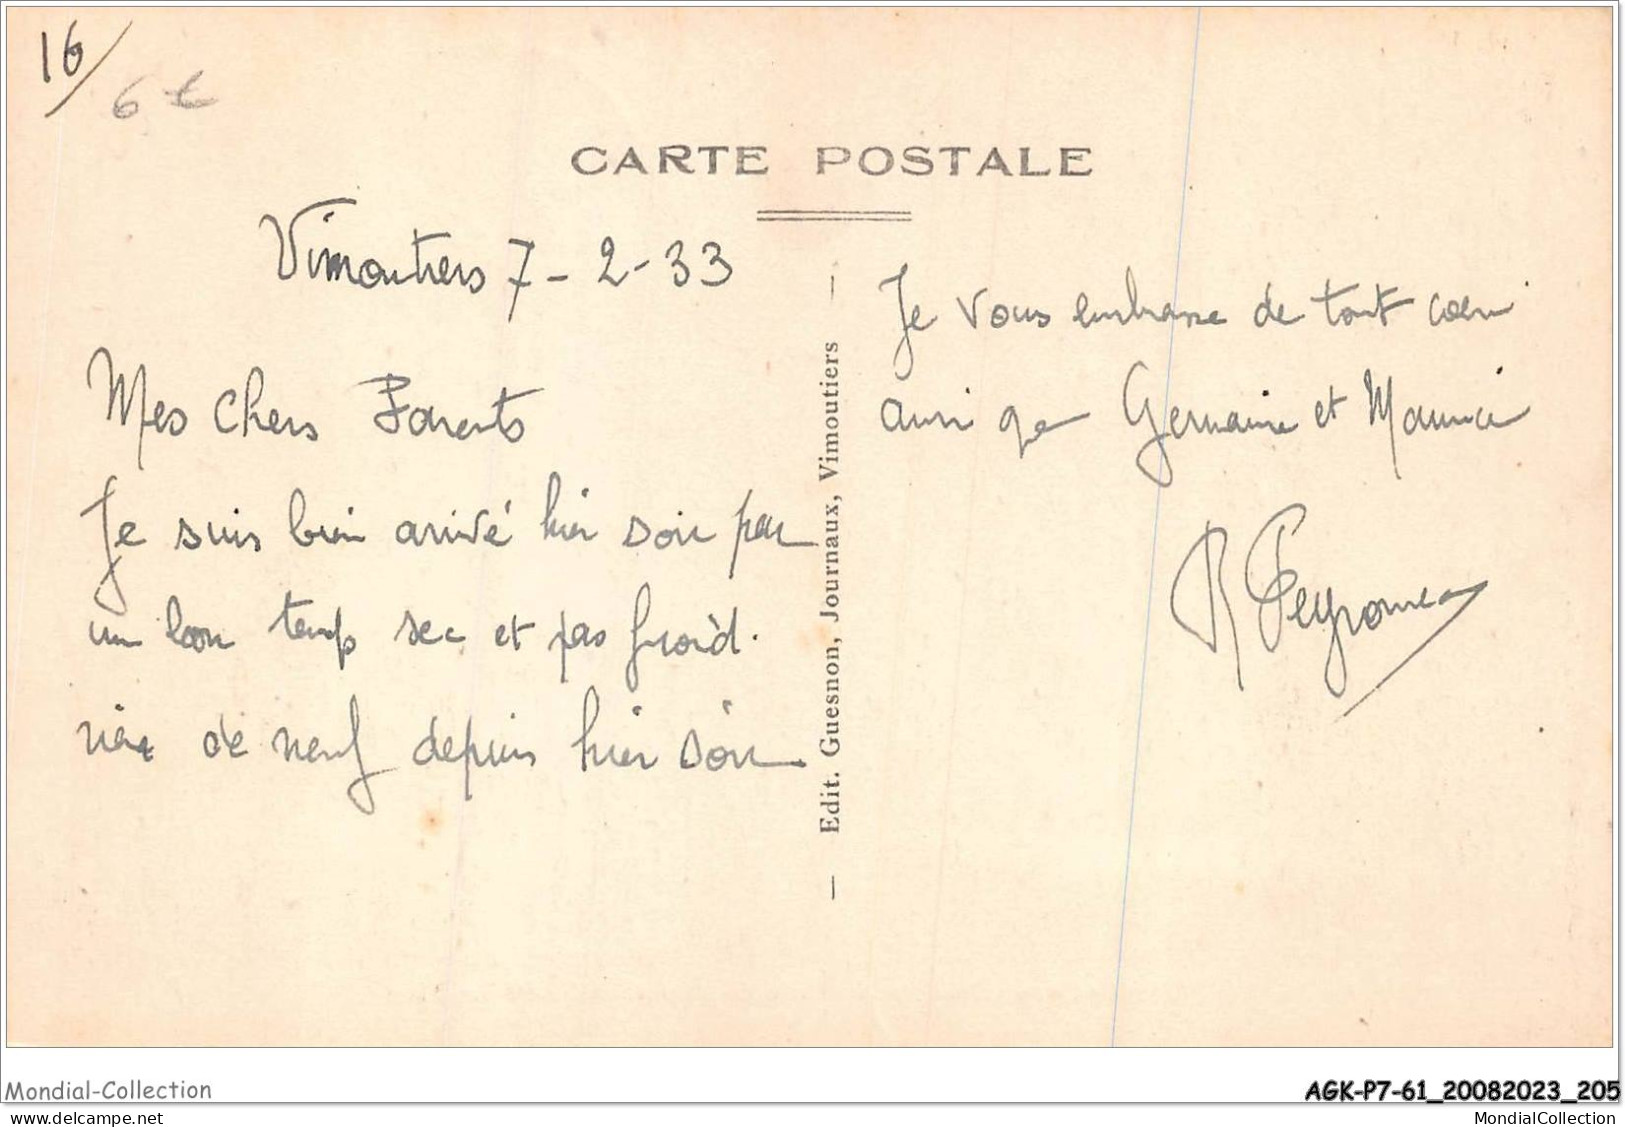 16/
6 €
CARTE POSTALE
Vimoutiers 7-2-33
Mes chers Parents
Je suis bien arrivé hier soir par
un bon temps sec et pas froid.
rien de neuf depuis hier soir
— Edit. Guesnon, Journaux, Vimoutiers —
Je vous embrasse de tout coeur
ainsi que Germaine et Maurice
R Peyronneau
Mondial-Collection
AGK-P7-61_20082023_205
delcampe.net
MondialCollection